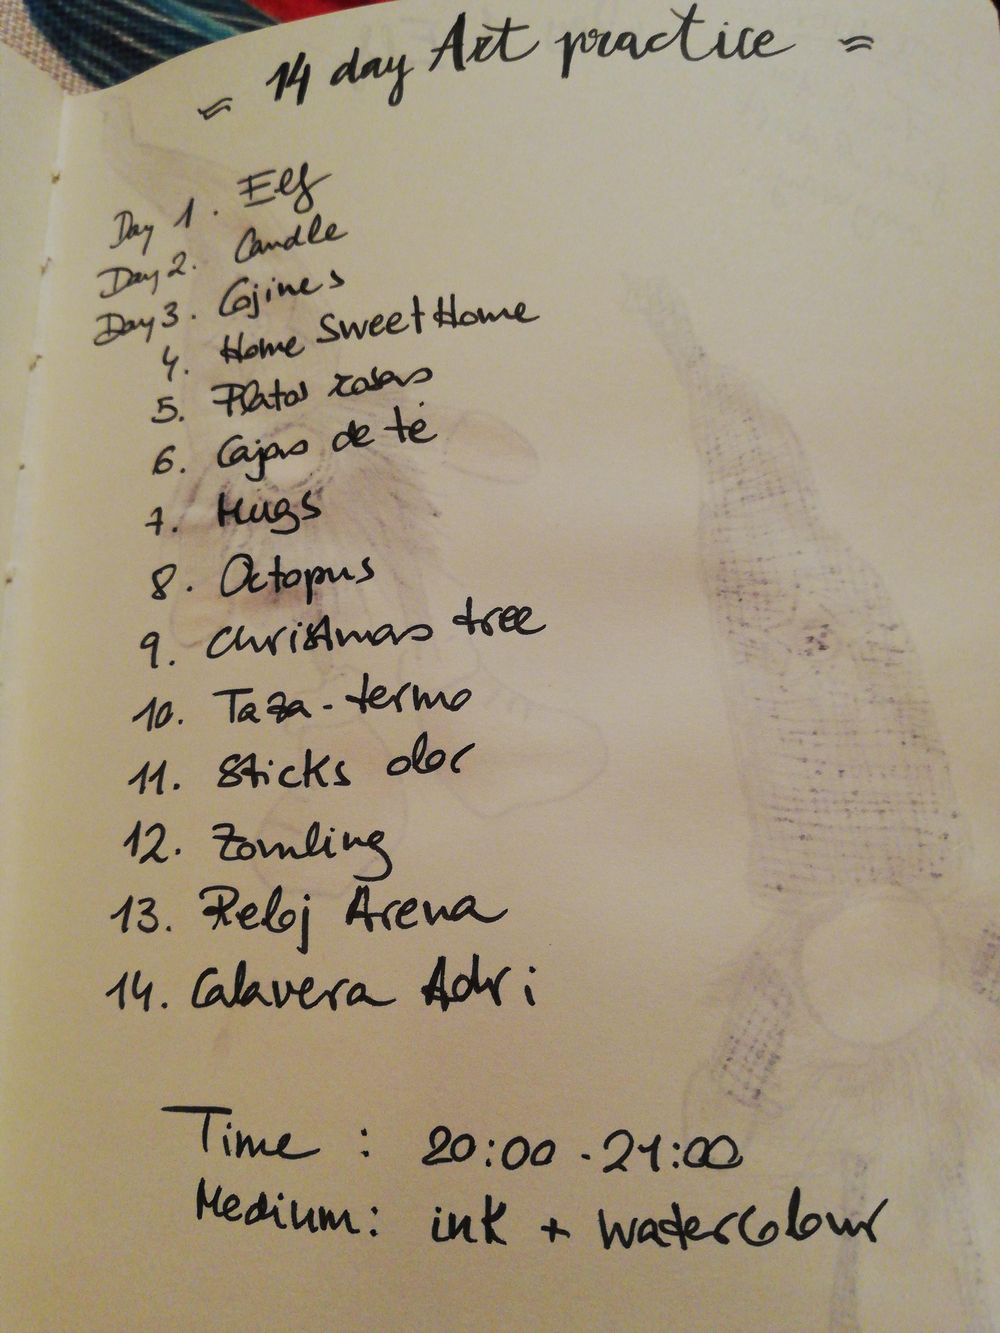 ≈ 14 day Art practice ≈
Day 1. Elf
Day 2. Candle
Day 3. Cojines
4. Home Sweet Home
5. Platos rosas
6. Cajas de té
7. Mugs
8. Octopus
9. Christmas tree
10. Taza-termo
11. Sticks olor
12. Zomling
13. Reloj Arena
14. Calavera Adri
Time : 20:00 - 21:00
Medium: ink + watercolour